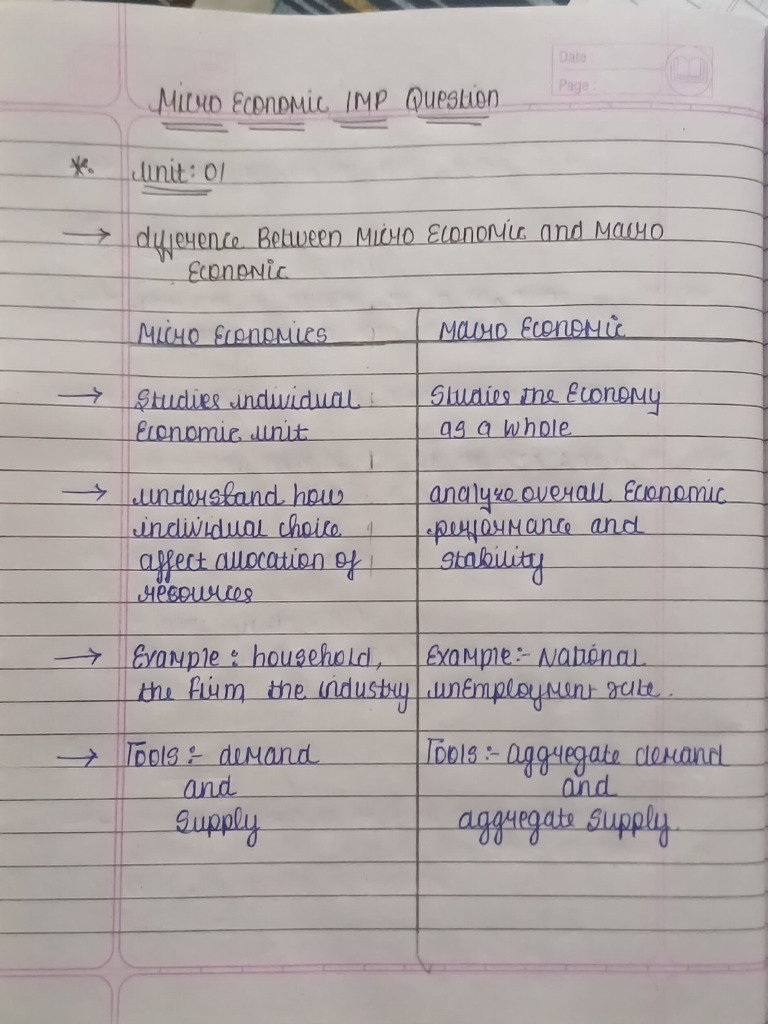 Date :
Page :
Micro Economic IMP Question
*. Unit: 01
→ difference Between Micro Economic and Macro
Economic
Micro Economics
Macro Economic
→ Studies individual
Economic unit
Studies the Economy
as a whole
→ understand how
individual choice
affect allocation of
resources
analyze overall Economic
performance and
stability
→ Example : household,
the firm the industry
Example:- National
unemployment rate.
→ Tools :- demand
and
Supply
Tools :- aggregate demand
and
aggregate supply.